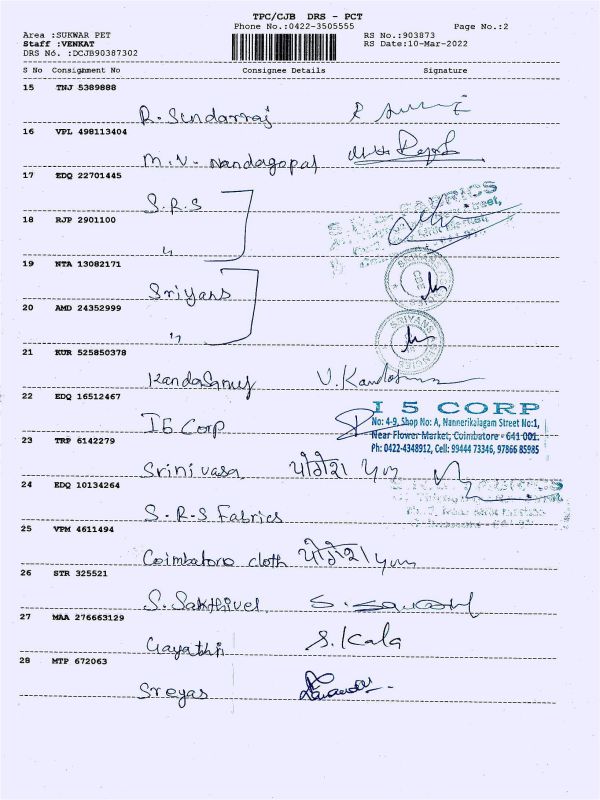 TPC/CJB DRS - PCT
Phone No.:0422-3505555 Page No.:2
Area :SUKWAR PET RS No.:903873
Staff :VENKAT RS Date:10-Mar-2022
DRS No. :DCJB90387302
S No Consignment No Consignee Details Signature
15 TNJ 5389888
R. Sundarraj
16 VPL 498113404
M.V. Nandagopal
17 EDQ 22701445
S.R.S
18 RJP 2901100
"
19 NTA 13082171
Sriyans
20 AMD 24352999
"
21 KUR 525850378
Kandasamy V. Kandasamy
22 EDQ 16512467
I5 Corp
I 5 CORP
No: 4-9, Shop No: A, Nannerikalagam Street No:1,
Near Flower Market, Coimbatore - 641 001.
Ph: 0422-4348912, Cell: 99444 73346, 97866 85985
23 TRP 6142279
Srinivasa
24 EDQ 10134264
S.R.S Fabrics
25 VPM 4611494
Coimbatore cloth
26 STR 325521
S. Sakthivel S. Sakthivel
27 MAA 276663129
Gayathri S. Kala
28 MTP 672063
Sreyas